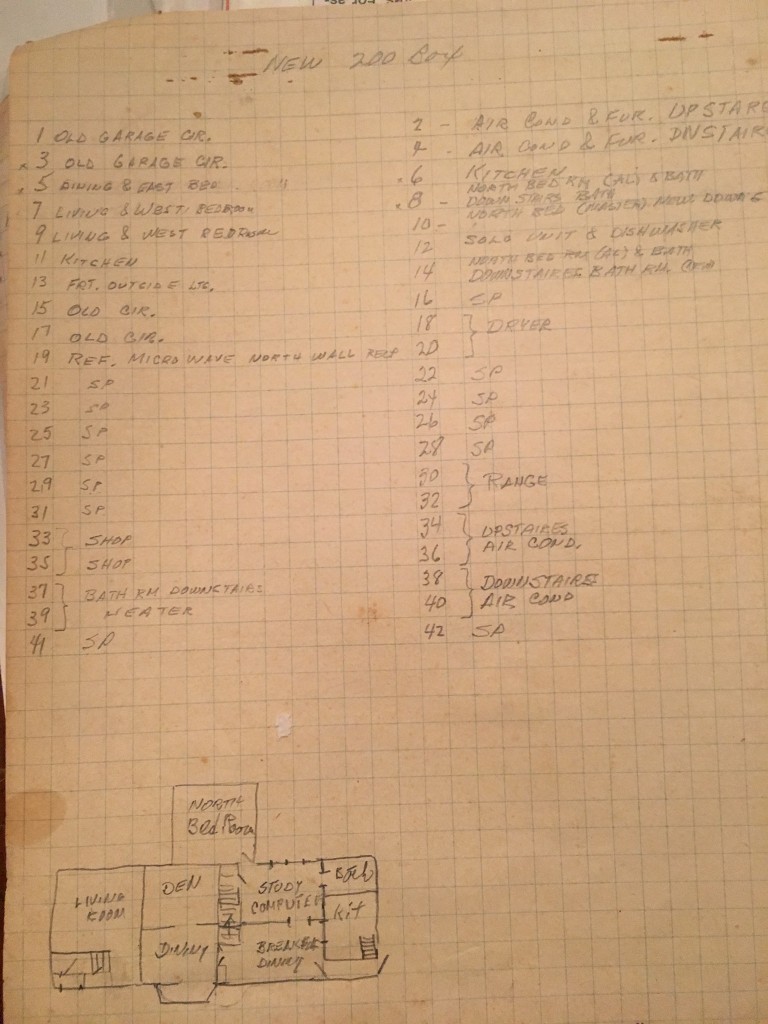 NEW 200 Box
1 OLD GARAGE CIR.
x 3 OLD GARAGE CIR.
x 5 DINING & EAST BED
7 LIVING & WEST BEDROOM
9 LIVING & WEST BEDROOM
11 KITCHEN
13 FRT. OUTSIDE LTG.
15 OLD CIR.
17 OLD CIR.
19 REF. MICROWAVE NORTH WALL
21 SP
23 SP
25 SP
27 SP
29 SP
31 SP
33 SHOP
35 SHOP
37 BATH RM DOWNSTAIRS
39 HEATER
41 SP
2 - AIR COND & FUR. UPSTARE
4 - AIR COND & FUR. DNSTAIR
x 6 KITCHEN
NORTH BED RM (AC) & BATH
x 8 - DOWN STAIRS BATH
NORTH BED NEW
10 -
12 UNIT & DISHWASHER
NORTH BED RM (AC) & BATH
14 DOWNSTAIRES BATH RM.
16 SP
18 DRYER
20
22 SP
24 SP
26 SP
28 SP
30 RANGE
32
34 UPSTAIRES
36 AIR COND.
38 DOWNSTAIRES
40 AIR COND
42 SP
NORTH
Bed Room
LIVING
ROOM
DEN
STUDY
COMPUTER
Kit
DINING
BREAK
DINING